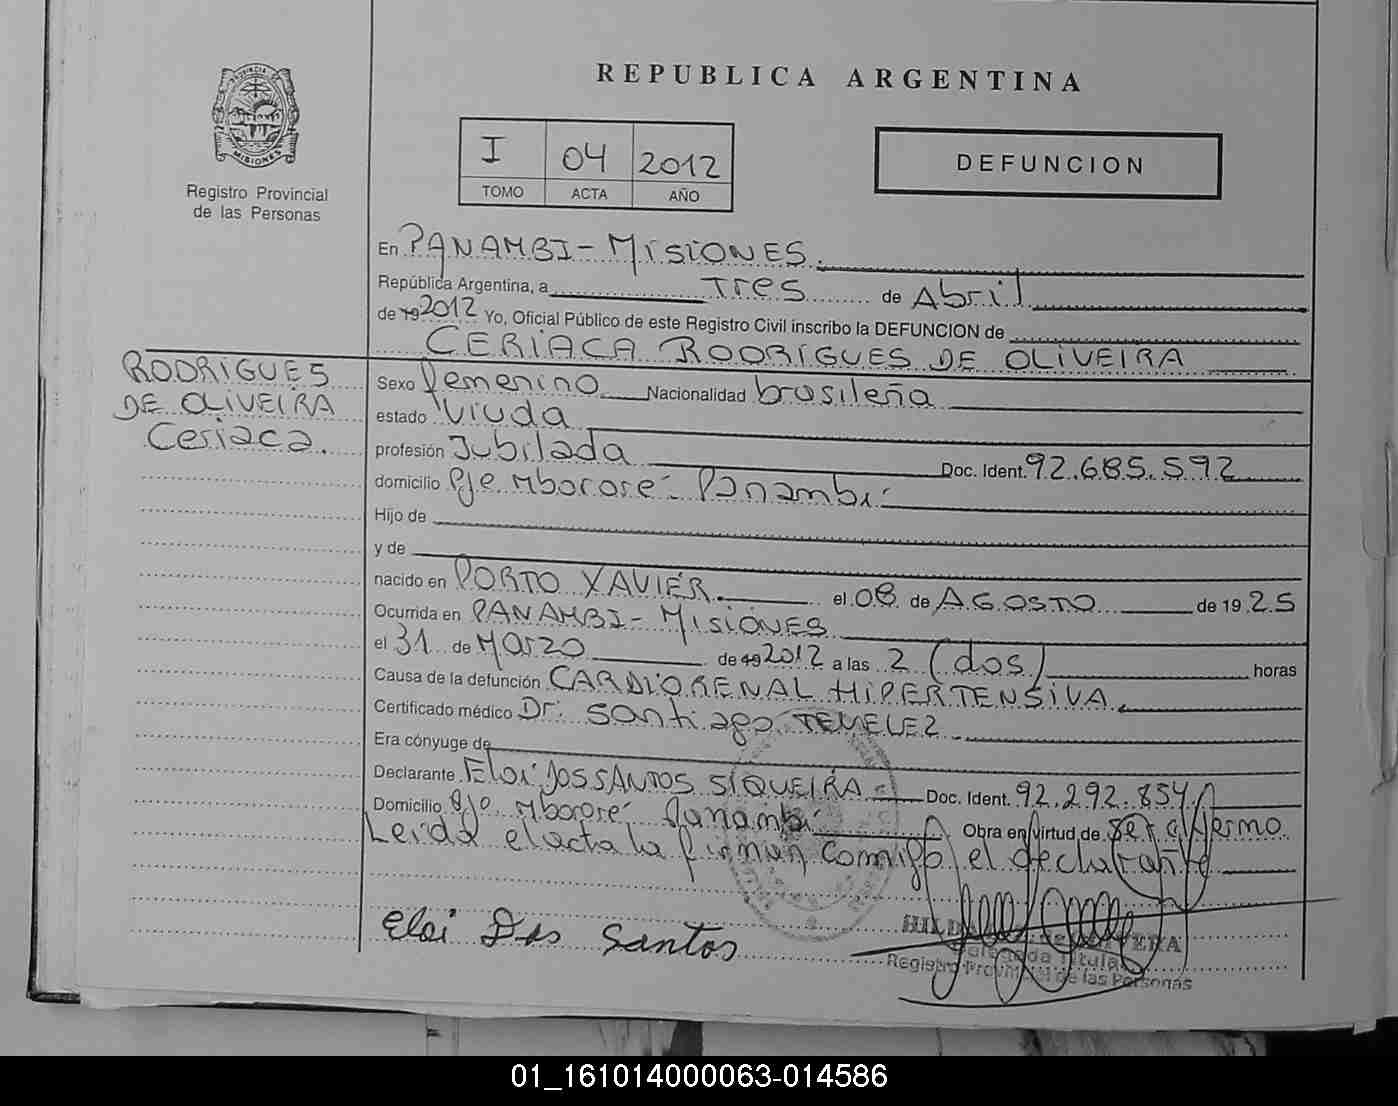 REPUBLICA ARGENTINA
PROVINCIA DE
MISIONES
Registro Provincial
de las Personas
I 04 2012
TOMO ACTA AÑO
DEFUNCION
En PANAMBI - MISIONES.
República Argentina, a Tres de Abril
de 19 2012 Yo, Oficial Público de este Registro Civil inscribo la DEFUNCION de
CERIACA RODRIGUES DE OLIVEIRA
RODRIGUES
DE OLIVEIRA
Ceriaca.
Sexo femenino Nacionalidad brasileña
estado Viuda
profesión Jubilada Doc. Ident. 92.685.592
domicilio Pje Mbororé - Panambí
Hijo de
y de
nacido en PORTO XAVIER. el 08 de AGOSTO de 19 25
Ocurrida en PANAMBI - MISIONES
el 31 de Marzo de 19 2012 a las 2 (dos) horas
Causa de la defunción CARDIORENAL HIPERTENSIVA.
Certificado médico Dr. Santiago
Era cónyuge de
Declarante Eloi DOS SANTOS SIQUEIRA Doc. Ident. 92.292.854
Domicilio Pje Mbororé Panambí Obra en virtud de ser
Leida el acta la firman conmigo el declarante
Eloi Dos Santos
Delegada Titular
Registro Provincial de las Personas
01_161014000063-014586